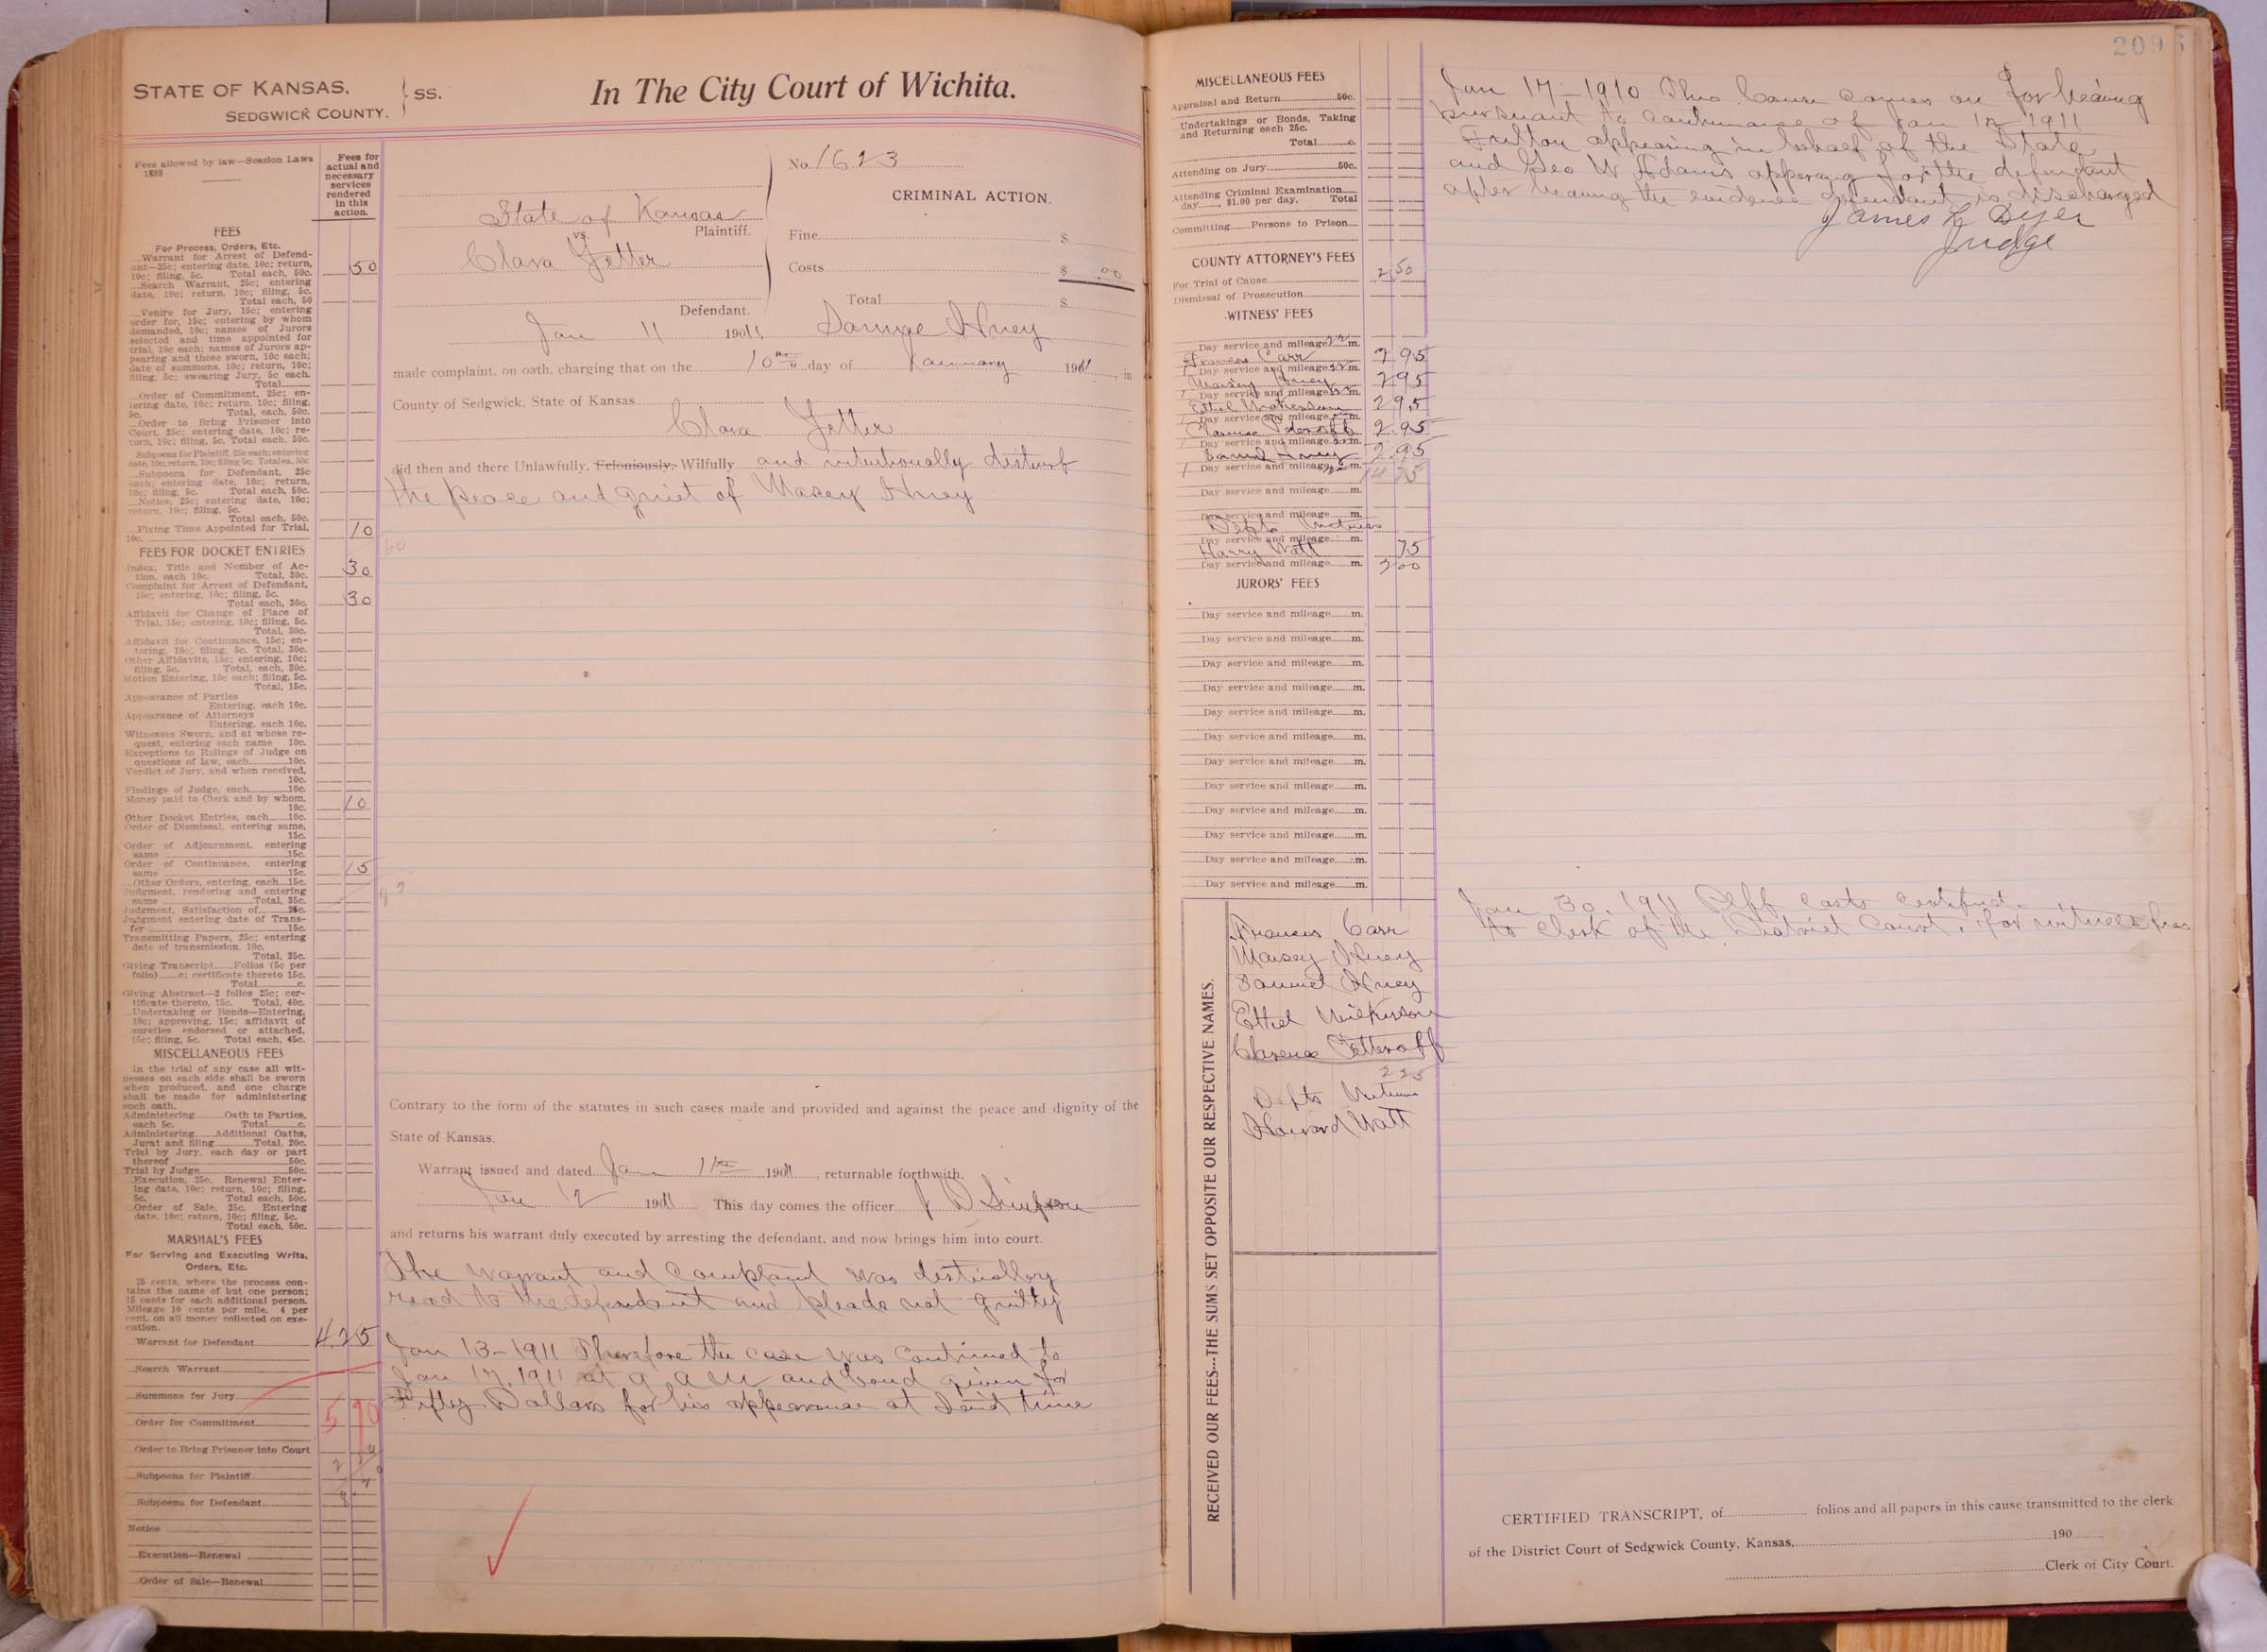 STATE OF KANSAS,
SEDGWICK COUNTY.
} SS.
In The City Court of Wichita.
Fees allowed by law—Session Laws
1899
Fees for
actual and
necessary
services
rendered
in this
action.
FEES
For Process, Orders, Etc.
Warrant for Arrest of Defend-
ant—25c; entering date, 10c; return,
10c; filing, 5c. Total each, 50c. 50
Search Warrant, 25c; entering
date, 10c; return, 10c; filing, 5c.
Total each, 50
Venire for Jury, 15c; entering
order for, 15c; entering by whom
demanded, 10c; names of Jurors
selected and time appointed for
trial, 10c each; names of Jurors ap-
pearing and those sworn, 10c each;
date of summons, 10c; return, 10c;
filing, 5c; swearing Jury, 5c each.
Total
Order of Commitment, 25c; en-
tering date, 10c; return, 10c; filing,
5c. Total, each, 50c.
Order to Bring Prisoner into
Court, 25c; entering date, 10c; re-
turn, 10c; filing, 5c. Total each, 50c.
Subpoena for Plaintiff, 25c each; entering
date, 10c; return, 10c; filing 5c; Total ea. 50c
Subpoena for Defendant, 25c
each; entering date, 10c; return,
10c; filing, 5c. Total each, 50c.
Notice, 25c; entering date, 10c;
return, 10c; filing, 5c.
Total each, 50c.
Fixing Time Appointed for Trial,
10c. 10
FEES FOR DOCKET ENTRIES
Index, Title and Number of Ac-
tion, each 10c. Total, 30c. 30
Complaint for Arrest of Defendant,
15c; entering, 10c; filing, 5c.
Total each, 30c. 30
Affidavit for Change of Place of
Trial, 15c; entering, 10c; filing, 5c.
Total, 30c.
Affidavit for Continuance, 15c; en-
tering, 10c; filing, 5c. Total, 30c.
Other Affidavits, 15c; entering, 10c;
filing, 5c. Total, each, 30c.
Motion Entering, 10c each; filing, 5c.
Total, 15c.
Appearance of Parties
Entering, each 10c.
Appearance of Attorneys
Entering, each 10c.
Witnesses Sworn, and at whose re-
quest, entering each name 10c.
Exceptions to Rulings of Judge on
questions of law, each 10c.
Verdict of Jury, and when received,
10c.
Findings of Judge, each 10c.
Money paid to Clerk and by whom,
10c. 10
Other Docket Entries, each 10c.
Order of Dismissal, entering same,
15c.
Order of Adjournment, entering
same 15c.
Order of Continuance, entering
same 15c. 15
Other Orders, entering, each 15c.
Judgment, rendering and entering
same Total, 35c.
Judgment, Satisfaction of 25c.
Judgment entering date of Trans-
fer 15c.
Transmitting Papers, 25c; entering
date of transmission, 10c.
Total, 35c.
Giving Transcript Folios (5c per
folio) c; certificate thereto 15c.
Total c.
Giving Abstract—3 folios 25c; cer-
tificate thereto, 15c. Total, 40c.
Undertaking or Bonds—Entering,
10c; approving, 15c; affidavit of
sureties endorsed or attached,
15c; filing, 5c. Total each, 45c.
MISCELLANEOUS FEES
In the trial of any case all wit-
nesses on each side shall be sworn
when produced, and one charge
shall be made for administering
such oath.
Administering Oath to Parties,
each 5c. Total c.
Administering Additional Oaths,
Jurat and filing Total, 20c.
Trial by Jury, each day or part
thereof 50c.
Trial by Judge 50c.
Execution, 25c. Renewal Enter-
ing date, 10c; return, 10c; filing,
5c. Total each, 50c.
Order of Sale, 25c. Entering
date, 10c; return, 10c; filing, 5c.
Total each, 50c.
MARSHAL'S FEES
For Serving and Executing Writs,
Orders, Etc.
25 cents, where the process con-
tains the name of but one person;
15 cents for each additional person.
Mileage 10 cents per mile. 4 per
cent. on all money collected on exe-
cution.
Warrant for Defendant 4 25
Search Warrant
Summons for Jury
Order for Commitment 5 70
Order to Bring Prisoner into Court
Subpoena for Plaintiff
Subpoena for Defendant
Notice
Execution—Renewal
Order of Sale—Renewal
No. 1623
CRIMINAL ACTION.
State of Kansas
vs. Plaintiff.
Clara Yetter
Defendant.
Fine $
Costs $ .00
Total $
Jan 11 1911 Samuel Huey
made complaint, on oath, charging that on the 10th day of January 1911, in
County of Sedgwick, State of Kansas
Clara Yetter
did then and there Unlawfully, Feloniously, Wilfully and intentionally disturb
the peace and quiet of Maxey Huey
Contrary to the form of the statutes in such cases made and provided and against the peace and dignity of the
State of Kansas.
Warrant issued and dated Jan 11th 1911, returnable forthwith.
Jan 12 1911 This day comes the officer J D Simpson
and returns his warrant duly executed by arresting the defendant, and now brings him into court.
The warrant and complaint was distinctley
read to the defendant and pleads not guilty
Jan 13-1911 Therefore the case was continued to
Jan 17.1911 at 9 a m and bond given for
Fifty Dollars for his appearance at said time
209
MISCELLANEOUS FEES
Appraisal and Return 50c.
Undertakings or Bonds, Taking
and Returning each 25c.
Total c.
Attending on Jury 50c.
Attending Criminal Examination
day, $1.00 per day. Total
Committing Persons to Prison
COUNTY ATTORNEY'S FEES
For Trial of Cause 2 50
Dismissal of Prosecution
WITNESS' FEES
Day service and mileage m.
Frances Carr 2 95
Day service and mileage m.
Maxey Huey 2 95
Day service and mileage m.
Ethel Wilkerson 2 95
Day service and mileage m.
Clarence Petteroff 2 95
Day service and mileage m.
Samuel Huey 2 95
Day service and mileage m. 14 75
Day service and mileage m.
Day service and mileage m.
Defts Witness
Day service and mileage m.
Harry Watt 75
Day service and mileage m.
JURORS' FEES
Day service and mileage m.
Day service and mileage m.
Day service and mileage m.
Day service and mileage m.
Day service and mileage m.
Day service and mileage m.
Day service and mileage m.
Day service and mileage m.
Day service and mileage m.
Day service and mileage m.
Day service and mileage m.
Day service and mileage m.
RECEIVED OUR FEES...THE SUMS SET OPPOSITE OUR RESPECTIVE NAMES.
Frances Carr
Maxey Huey
Samuel Huey
Ethel Wilkerson
Clarence Petteroff
225
Defts Witness
Howard Watt
Jan 17-1910 This Cause comes on for hearing
pursuant to continuance of Jan 12 1911
Fulton appearing in behalf of the State
and Geo W Adams appearing for the defendant
after hearing the evidence defendant is discharged
James L Dyer
Judge
Jan 30. 1911 Plff costs certified
to clerk of the District Court, for witness fees
CERTIFIED TRANSCRIPT, of folios and all papers in this cause transmitted to the clerk
of the District Court of Sedgwick County, Kansas, 190
Clerk of City Court.